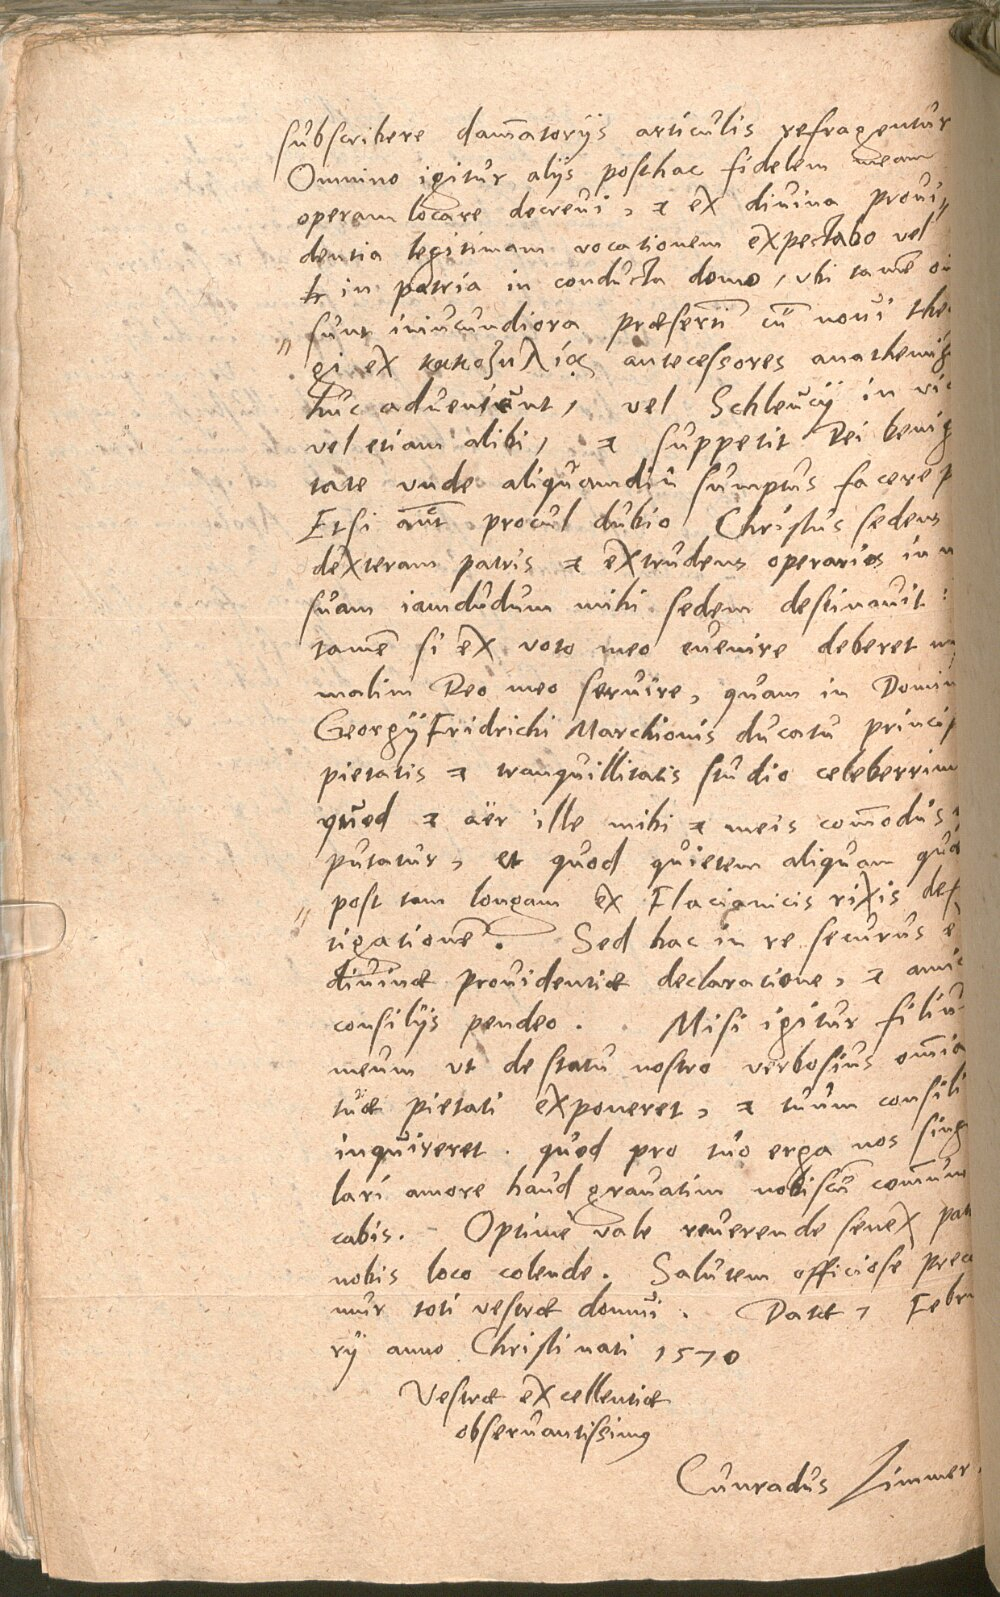 subscribere dam̄atorijs articulis refragentur
Omnino igitur alijs posthac fidelem meam
operam locare decrevi, & ex divina provi„
dentia legitimam vocationem expectabo vel
hic in patria in conducta domo, vbi tamē oi
sunt iniucundiora præsertī cū novi the
gi ex κακοζηλίας antecessores anathemiz
huc advenerunt, vel Schleucij in vic
vel etiam alibi, & suppetit Dei benig
tate vnde aliquamdiu sumptus facere p
Etsi aūt procul dubio Christus sedens
dexteram patris & extrudens operarios in m
suam iamdudum mihi sedem destinavit:
tamē si ex voto meo evenire deberet nus
malim Deo meo servire, quam in Domin
Georgij Fridrichi Marchionis ducatu princip
pietatis & tranquillitatis studio celeberrim
quod & aër ille mihi & meis com̄odus
putatur, et quod quietem aliquam quæ
post tam longam ex Flacianicis rixis def
tigationē. Sed hac in re securus e
divinæ providentiæ declaratione, & amic
consilijs pendeo. Misi igitur filiu
meum vt de statu nostro verbosius om̄ia
tuæ pietati exponeret, & tuum consili
inquireret. quod pro tuo erga nos sing
lari amore haud gravatim nobiscū com̄uni
cabis. Optime vale reverende senex patr
nobis loco colende. Salutem officiose preca
mur toti vestræ domui. Datæ 7 Febru
rij anno Christi nati 1570
Vestræ excellentiæ
observantissimus
Cunradus Zimmer